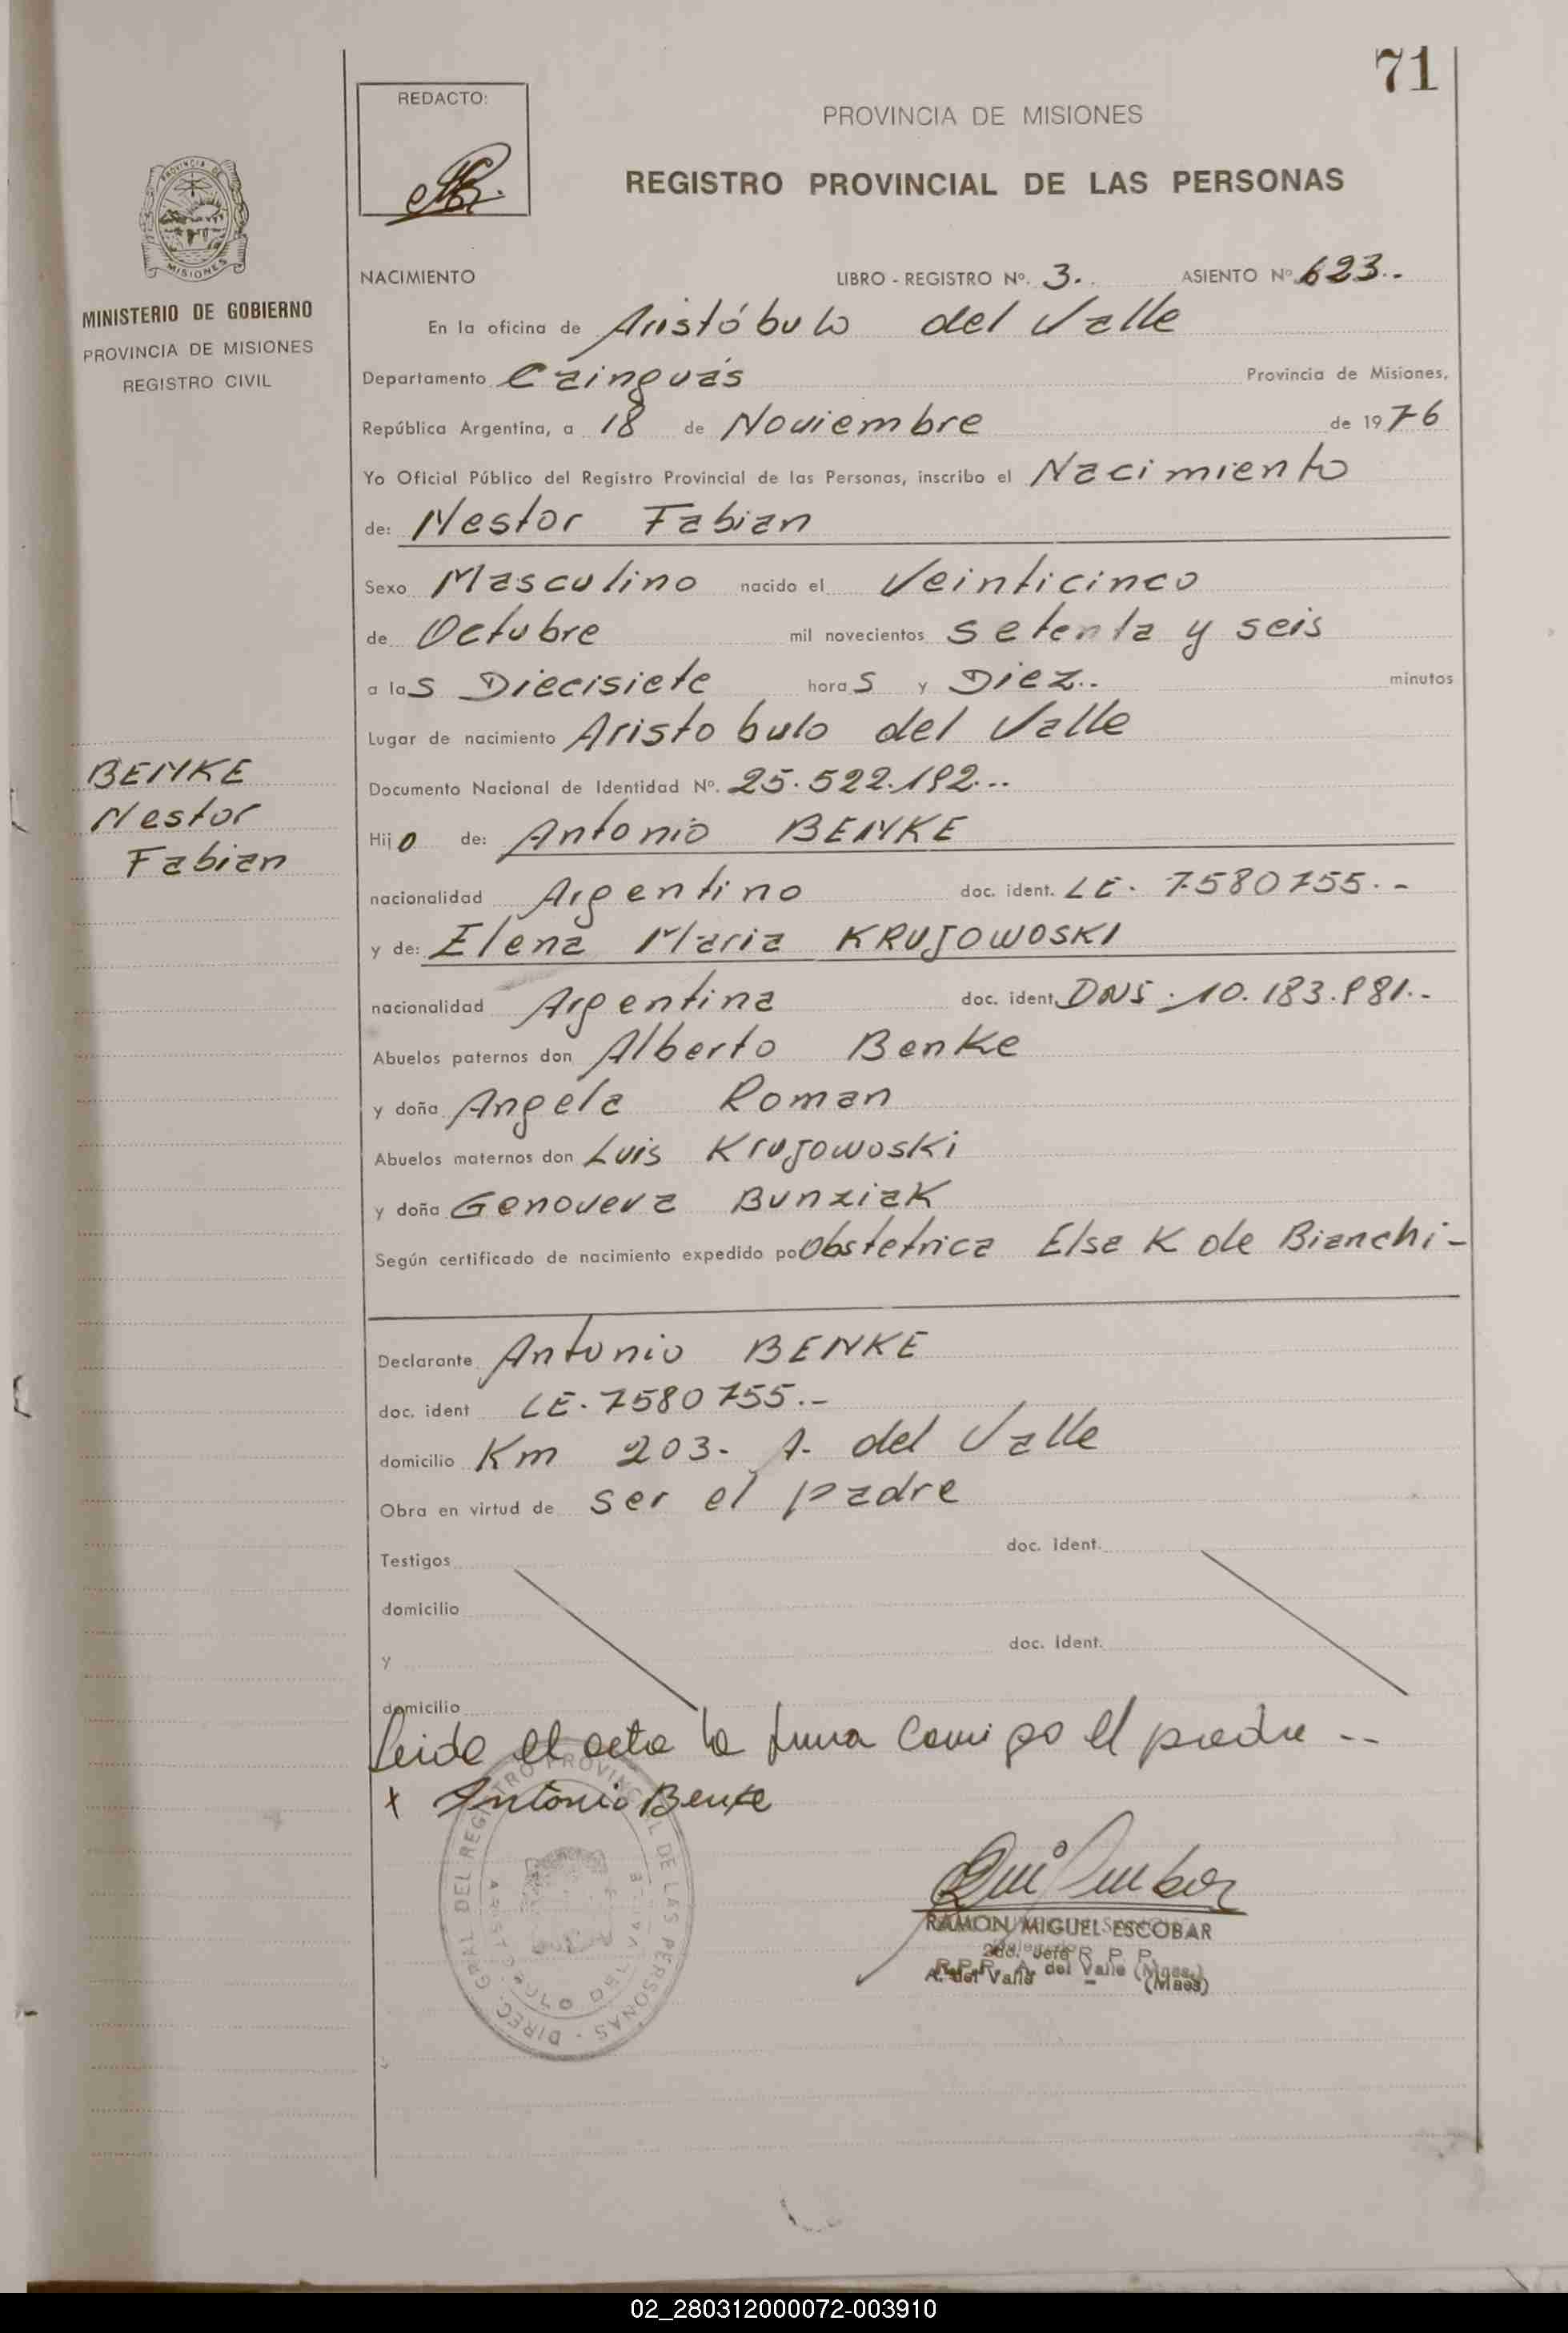 71
REDACTO:
PROVINCIA DE MISIONES
REGISTRO PROVINCIAL DE LAS PERSONAS
PROVINCIA DE
MISIONES
MINISTERIO DE GOBIERNO
PROVINCIA DE MISIONES
REGISTRO CIVIL
NACIMIENTO LIBRO - REGISTRO Nº. 3. ASIENTO Nº 623.-
En la oficina de Aristóbulo del Valle
Departamento Cainguás Provincia de Misiones,
República Argentina, a 18 de Noviembre de 1976
Yo Oficial Público del Registro Provincial de las Personas, inscribo el Nacimiento
de: Nestor Fabian
Sexo Masculino nacido el Veinticinco
de Octubre mil novecientos setenta y seis
a las Diecisiete horas y Diez.. minutos
Lugar de nacimiento Aristobulo del Valle
BENKE
Nestor
Fabian
Documento Nacional de Identidad Nº. 25.522.192...
Hijo de: Antonio BENKE
nacionalidad Argentino doc. ident. LE. 7580755.-
y de: Elena Maria KRUJOWOSKI
nacionalidad Argentina doc. ident. 10.183.981.-
Abuelos paternos don Alberto Benke
y doña Angela Roman
Abuelos maternos don Luis Krujowoski
y doña Genoveva Bunziak
Según certificado de nacimiento expedido po Obstetrica Elsa K de Bianchi-
Declarante Antonio BENKE
doc. ident LE. 7580755.-
domicilio Km 203. A. del Valle
Obra en virtud de ser el padre
Testigos doc. ident.
domicilio
y doc. ident.
domicilio
Leida el acta la firma conmigo el padre --
x Antonio Benke
DIREC. GRAL DEL REGISTRO PROVINCIAL DE LAS PERSONAS
ARISTOBULO DEL VALLE
RAMON MIGUEL ESCOBAR
2do. Jefe R. P. P.
A. del Valle (Mnes)
02_280312000072-003910